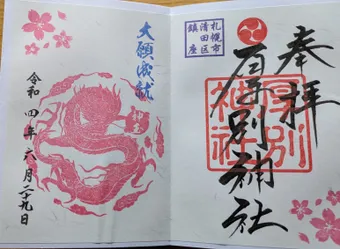 奉拝
札幌市
清田区
鎮座
厚別神社
厚別
神社
大願成就
令和四年六月二十九日